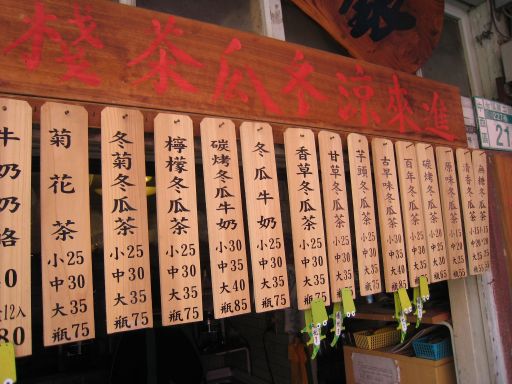 進來涼冬瓜茶棧
227號
21
無糖冬瓜茶
清香冬瓜茶
原味冬瓜茶
碳烤冬瓜茶
百年冬瓜茶
古早味冬瓜茶
芋頭冬瓜茶小25中30大35瓶75
甘草冬瓜茶小25中30大35瓶75
香草冬瓜茶小25中30大35瓶75
冬瓜牛奶小25中30大35瓶75
碳烤冬瓜牛奶小30中35大40瓶85
檸檬冬瓜茶小25中30大35瓶75
冬菊冬瓜茶小25中30大35瓶75
菊花茶小25中30大35瓶75
牛奶奶酪
12入
80